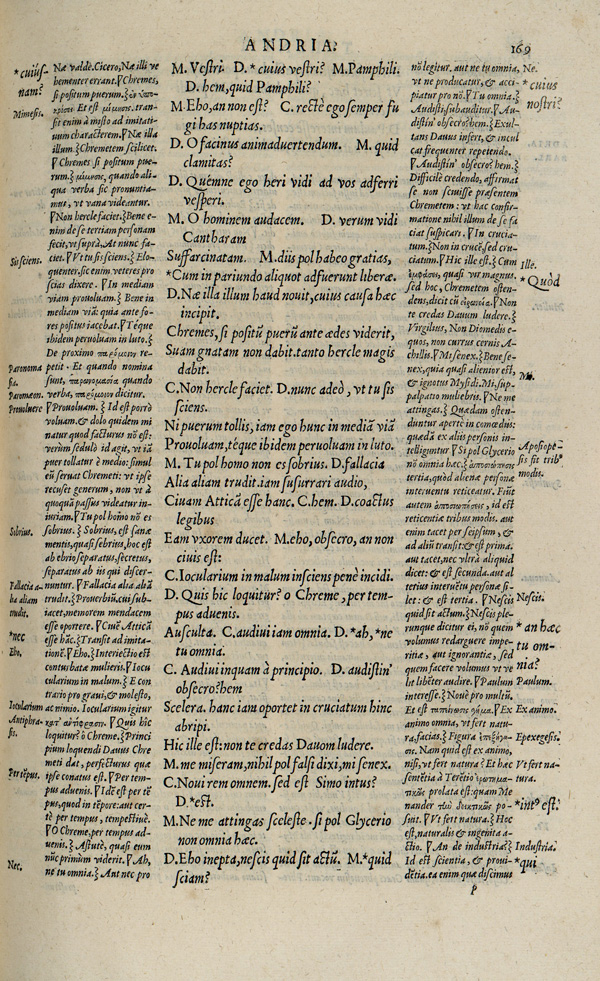 ANDRIA.
169
*cuius-
nam?
Mimesis.
Sis sciens.
Paronoma
sia.
Paromœon.
Prouoluere
Sobrius.
Fallacia a-
lia aliam
trudit.
*nec
Eho.
Iocularium
Antiphra-
sis.
Per tēpus.
Nec.
Næ valdè. Cicero, Næ illi ve
hementer errant. ¶ Chremes,
si positum puerum.
Et est
sit enim à mœsto ad imitati-
uum characterem. ¶ Næ illa
illum. ξ Chremetem scilicet.
¶ Chremes si positum pue-
rum. ξ quando ali-
qua verba sic pronuntia-
mus, vt vana videantur.
¶ Non hercle faciet. ξ Bene e-
nim de se tertiam personam
fecit, vt suprà, At nunc fa-
ciet. ¶ Vt tu sis sciens. ξ Elo-
quenter. sic enim veteres pro
scias dixere. ¶ In mediam
viam prouoluam. ξ Bene in
mediam viā: quia ante fo-
res positus iacebat. ¶ Téque
ibidem peruoluam in luto. ξ
De proximo re-
petit. Et quando nomina
sunt, quando
verba, dicitur.
¶ Prouoluam. ξ Id est porrò
voluam. & dolo quidem mi
natur quod facturus nō est:
verùm sedulò id agit, vt iā
puer tollatur è medio: simul
eū seruat Chremeti: vt ipse
recuset generum, non vt à
quoquā passus videatur in-
iuriam. ¶ Tu pol homo nō es
sobrius. ξ Sobrius, est sanæ
mentis, quasi sebrius, hoc est
ab ebrio separatus, secretus,
separatus ab iis qui discer-
nuntur. ¶ Fallacia alia aliā
trudit. ξ Prouerbiū, cui sub-
iacet, memorem mendacem
esse oportere. ¶ Ciuē Atticā
esse hāc. ξ Transit ad imita-
tionē. ¶ Eho. ξ Interiectio est
conturbatæ mulieris. ¶ Iocu
larium in malum. ξ E con
trario pro graui, & molesto,
pro iocoso. Iocularium igitur
¶ Quis hic
loquitur? ô Chreme. ξ Princi
pium loquendi Dauus Chre
meti dat, perfecturus quæ
ipse conatus est. ¶ Per tem-
pus aduenis. ξ Idē est per tē
pus, quod in tēpore: aut cer-
tè per tempus, tempestiuè.
¶ O Chreme, per tempus ad-
uenis. ξ Astutè, quasi eum
nūc primùm viderit. ¶ Ah,
ne tu omnia. ξ Aut nec pro
M. Vestri. D. *cuius vestri? M. Pamphili.
D. hem, quid Pamphili?
M. Eho, an non est? C. rectè ego semper fu
gi has nuptias.
D. O facinus animaduertendum. M. quid
clamitas?
D. Quémne ego heri vidi ad vos adferri
vesperi.
M. O hominem audacem. D. verum vidi
Cantharam
Suffarcinatam. M. diis pol habeo gratias,
*Cum in pariundo aliquot adfuerunt liberæ.
D. Næ illa illum haud nouit, cuius causa hæc
incipit.
Chremes, si positū puerū ante ædes viderit,
Suam gnatam non dabit. tanto hercle magis
dabit.
C. Non hercle faciet. D. nunc adeò, vt tu sis
sciens.
Ni puerum tollis, iam ego hunc in mediā viā
Prouoluam, téque ibidem peruoluam in luto.
M. Tu pol homo non es sobrius. D. fallacia
Alia aliam trudit. iam susurrari audio,
Ciuam Atticā esse hanc. C. hem. D. coactus
legibus
Eam vxorem ducet. M. eho, obsecro, an non
ciuis est:
C. Iocularium in malum insciens penè incidi.
D. Quis hic loquitur? o Chreme, per tem-
pus aduenis.
Ausculta. C. audiui iam omnia. D. *ah, *ne
tu omnia.
C. Audiui inquam à principio. D. audistin'
obsecro? hem
Scelera. hanc iam oportet in cruciatum hinc
abripi.
Hic ille est: non te credas Dauom ludere.
M. me miseram, nihil pol falsi dixi, mi senex.
C. Noui rem omnem. sed est Simo intus?
D. *est.
M. Ne me attingas sceleste. si pol Glycerio
non omnia hæc.
D. Eho inepta, nescis quid sit actū. M. *quid
sciam?
nō legitur. aut ne tu omnia,
vt ne producatur, & acci-
piatur pro nō. ¶ Tu omnia. ξ
Audisti, subauditur. ¶ Au-
distin' obsecro? hem. ξ Exul-
tans Dauus insert, & incul
cat frequenter repetendo.
¶ Audistin' obsecro? hem. ξ
Difficilè credendo, affirmat
se non sciuisse præsentem
Chremetem: vt hac confir-
matione nihil illum de se fa
ciat suspicari. ¶ In crucia-
tum. ξ Non in crucē, sed cru-
ciatum. ¶ Hic ille est. ξ Cum
quasi vir magnus.
sed hoc, Chremetem osten-
dens, dicit cū ¶ Non
te credas Dauum ludere. ξ
Virgilius, Non Diomedis e-
quos, non currus cernis A-
chillis. ¶ Mi senex. ξ Bene se-
nex, quia quasi alienior est,
& ignotus Mysidi. Mi, sup-
palpatio muliebris. ¶ Ne me
attingas. ξ Quædam osten-
duntur apertè in comœdiis:
quædā ex aliis personis in-
telliguntur ¶ Si pol Glycerio
nō omnia hæc. ξ
tertia, quòd alienæ personæ
interuentu reticeatur. Fiūt
autem id est
reticentiæ tribus modis. aut
enim tacet per seipsum, &
ad aliū transit: & est prima.
aut tacet, nec vltrà aliquid
dicet: & est secunda. aut al
terius interuētu personæ si-
let: & est tertia. ¶ Nescis
quid sit actum. ξ Nescis ple-
runque dicitur ei, nō quem
volumus redarguere impe-
ritiæ, aut ignorantiæ, sed
quem facere volumus vt ve
lit libēter audire. ¶ Paulum
interesse. ξ Nouè pro multū.
Et est ¶ Ex
animo omnia, vt fert natu-
ra, facias. ξ Figura
Nam quid est ex animo,
nisi, vt fert natura? Et hæc
sentētia à Terētio
prolata est: quam Me
nander po-
suit. ¶ Vt fert natura. ξ Hoc
est, naturalis & ingenita a-
ctio. ¶ An de industria? ξ
Id est scientia, & proui-
dētia. ea enim quæ discimus
Ne.
*cuius
nostri?
Ille.
*Quòd
Mi.
Aposiope-
sis fit trib9
modis.
Nescis.
*an hæc
tu om-
nia?
Paulum.
Ex animo.
Epexegesis.
Vt fert na-
tura.
*int9 est.
Industria.
*qui
P